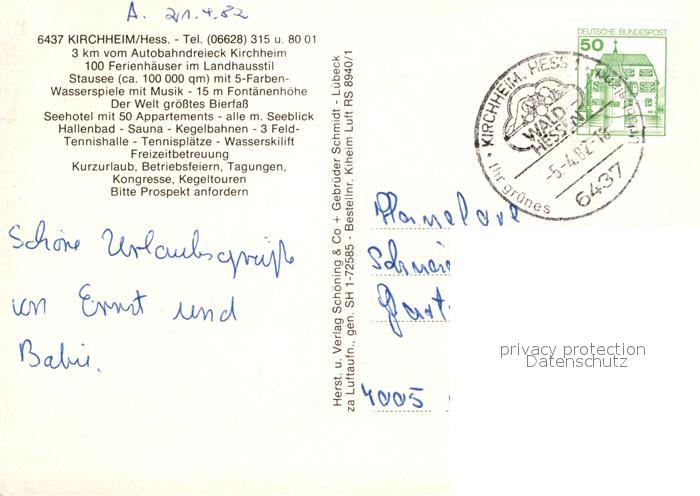 A. 21.4.82
6437 KIRCHHEIM/Hess. - Tel. (06628) 315 u. 80 01
3 km vom Autobahndreieck Kirchheim
100 Ferienhäuser im Landhausstil
Stausee (ca. 100 000 qm) mit 5-Farben-
Wasserspiele mit Musik - 15 m Fontänenhöhe
Der Welt größtes Bierfaß
Seehotel mit 50 Appartements - alle m. Seeblick
Hallenbad - Sauna - Kegelbahnen - 3 Feld-
Tennishalle - Tennisplätze - Wasserskilift
Freizeitbetreuung
Kurzurlaub, Betriebsfeiern, Tagungen,
Kongresse, Kegeltouren
Bitte Prospekt anfordern
Schöne Urlaubsgrüße
von Ernst und
Herst. u. Verlag Schöning & Co + Gebrüder Schmidt - Lübeck
za Luftaufn., gen. SH 1-72585 - Bestellnr. Kiheim Luft RS 8940/1
DEUTSCHE BUNDESPOST
50
KIRCHHEIM, HESS
WALD
HESSEN
-5.4.82-18
6437
Ihr grünes
Hannelore
4005
privacy protection
Datenschutz